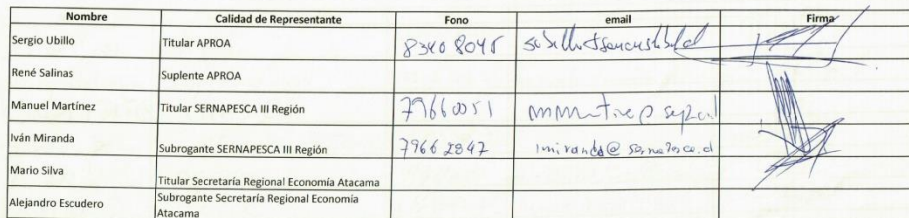 Nombre Calidad de Representante Fono email Firma
Sergio Ubillo Titular APROA 8340 8045
René Salinas Suplente APROA
Manuel Martínez Titular SERNAPESCA III Región
Iván Miranda Subrogante SERNAPESCA III Región 7966 2847 imiranda@sernapesca.cl
Mario Silva Titular Secretaría Regional Economía Atacama
Alejandro Escudero Subrogante Secretaría Regional Economía
Atacama